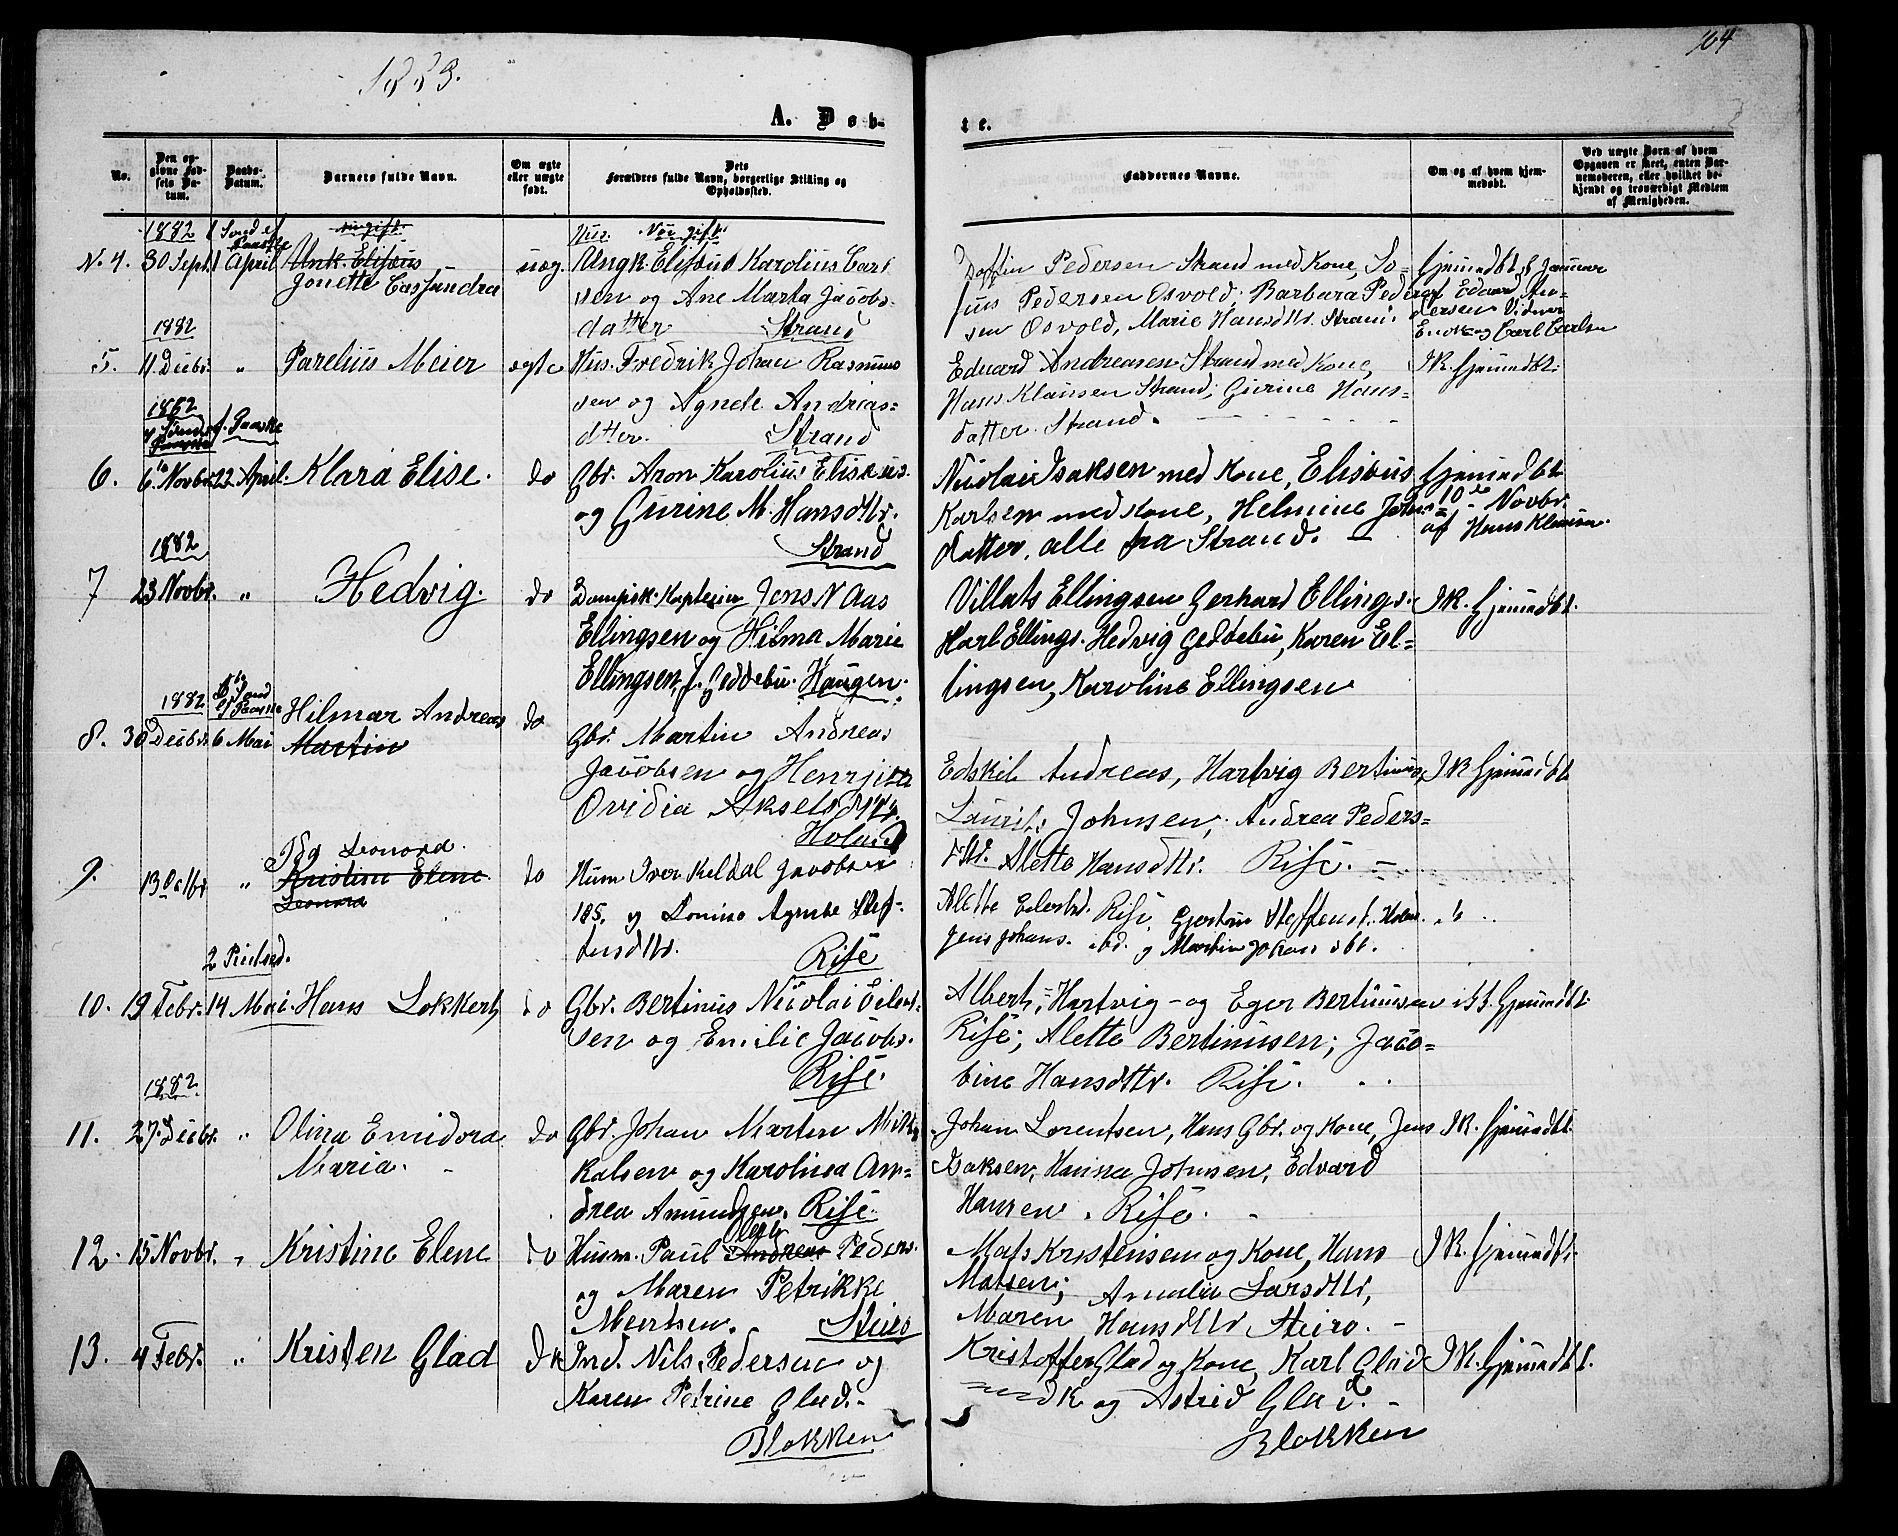 1883.
64
A. Døb-
te.
No.
Den op-
givne Fød-
sels Da-
tum.
Daabs-
Datum.
Barnets fulde Navn.
Om ægte
eller uægte
født.
Dets
Forældres fulde Navn, borgerlige Stilling og
Opholdssted.
Faddernes Navne.
Om og af hvem hjem-
medøbt.
Ved uægte Børn af hvem
Opgaven er skeet, enten Bar-
nemoderen, eller hvilket be-
kjendt og troværdigt Medlem
af Menigheden.
N. 4.
1882
30 Sept.
1 Sønd ef
Paaske
1 April
ugift.
Unk. Elisæus
Jonette Cassandra
uæg.
Ungk. Elisæus Karolius Carl
sen og Ane Marta Jacobs-
datter Strand
Daffin Pedersen Strand med Kone, Jo-
jus Pedersen Osvold, Barbara Peder
sen Osvold, Marie Hansdttr. Strand.
Hjemmedbt. Januar
af Edvard An-
dersen Vidner
Enok og Carl Carlsen
5.
1882
11 Decbr.
"
Parelius Meier
ægte
Hus. Fredrik Johan Rasmus
sen og Agnete Andreas-
dtter. Strand
Edvard Andreasen Strand med Kone,
Hans Klausen Strand; Gurine Hans-
datter Strand.
IK. Hjemmedbt.
6.
1882
6te Novbr.
4 Sønd. f. Paaske
22 April.
Klara Elise.
do
Gbr. Aron Karolius Elisæus.
og Gurine M. Hansdttr.
Strand
Nicolai Isaksen med Kone, Elisæus
Karlsen med Kone, Helmine Johns-
datter, alle fra Strand.
Hjemmedbt
10de Novbr.
af Hans Klausen.
7
1882
23 Novbr.
"
Hedvig.
do
Dampsk. Kaptein Jens N Aas
Ellingsen og Hilma Marie
Ellingsen, f. Geddebu. Haugen.
Villats Ellingsen Gerhard Ellings.
Karl Ellings. Hedvig Geddebu, Karen El-
lingsen, Karoline Ellingsen
IK. Hjemmedbt.
8.
1882
30 Decbr.
6 Mai
Hilmar Andreas
Martin
do
Gbr. Martin Andreas
Jacobsen og Henrjette
Ovidia Akselsdttr.
Holand
Edskil Andreas, Hartvig Bertinus,
Laurits Johnsen, Andrea Peders-
dttr. Alette Hansdttr. Rise.
IK Hjemmedbt
9.
13 Octbr.
"
Ida Leonora.
Kristine Elene
Leonora
do
Husm Iver Keldal Jacobsen
185. og Lovise Agnete Stef-
fensdttr.
Rise
Alette Eilertsd. Rise, Gjertine Steffensd. Holm.
Jens Johans. ibd. og Martin Johans ibt.
10.
19 Febr.
2 Pintsed.
14 Mai.
Hans Lokkert
do
Gbr. Bertinus Nicolai Eilert-
sen og Emilie Jacobs.
Rise.
Albert, Hartvig - og Eger Bertinusen
Rise; Alette Bertinusen; Jaco-
bine Hansdttr. Rise.
ikk. Hjemmedbt.
11.
1882.
27. Decbr.
"
Olina Emidora
Maria.
do
Gbr. Johan Martin Mik-
kalsen og Karolina An-
drea Amundsen. Rise.
Johan Lorentsen, Hans Gbr. og Kone, Jens
Isaksen, Hanna Johnsen, Edvard
Hansen. Rise.
IK. Hjemmedbt.
12.
15 Novbr.
"
Kristine Elene
do
Husm. Paul Andreas Peders.
og Maren Petrikke
Mentsen. Steiro
Mats Kristensen og Kone, Hans
Matsen; Amalie Larsdttr,
Maren Hansdttr Steiro.
IK. Hjemmedbt.
13.
4 Febr.
"
Kristen Glad
do
Ind. Nils Pedersen og
Karen Petrine Glad.
Blokken
Kristoffer Glad og Kone, Karl Glad
med K og Astrid Glad.
Blokken
IK. Hjemmedbt.